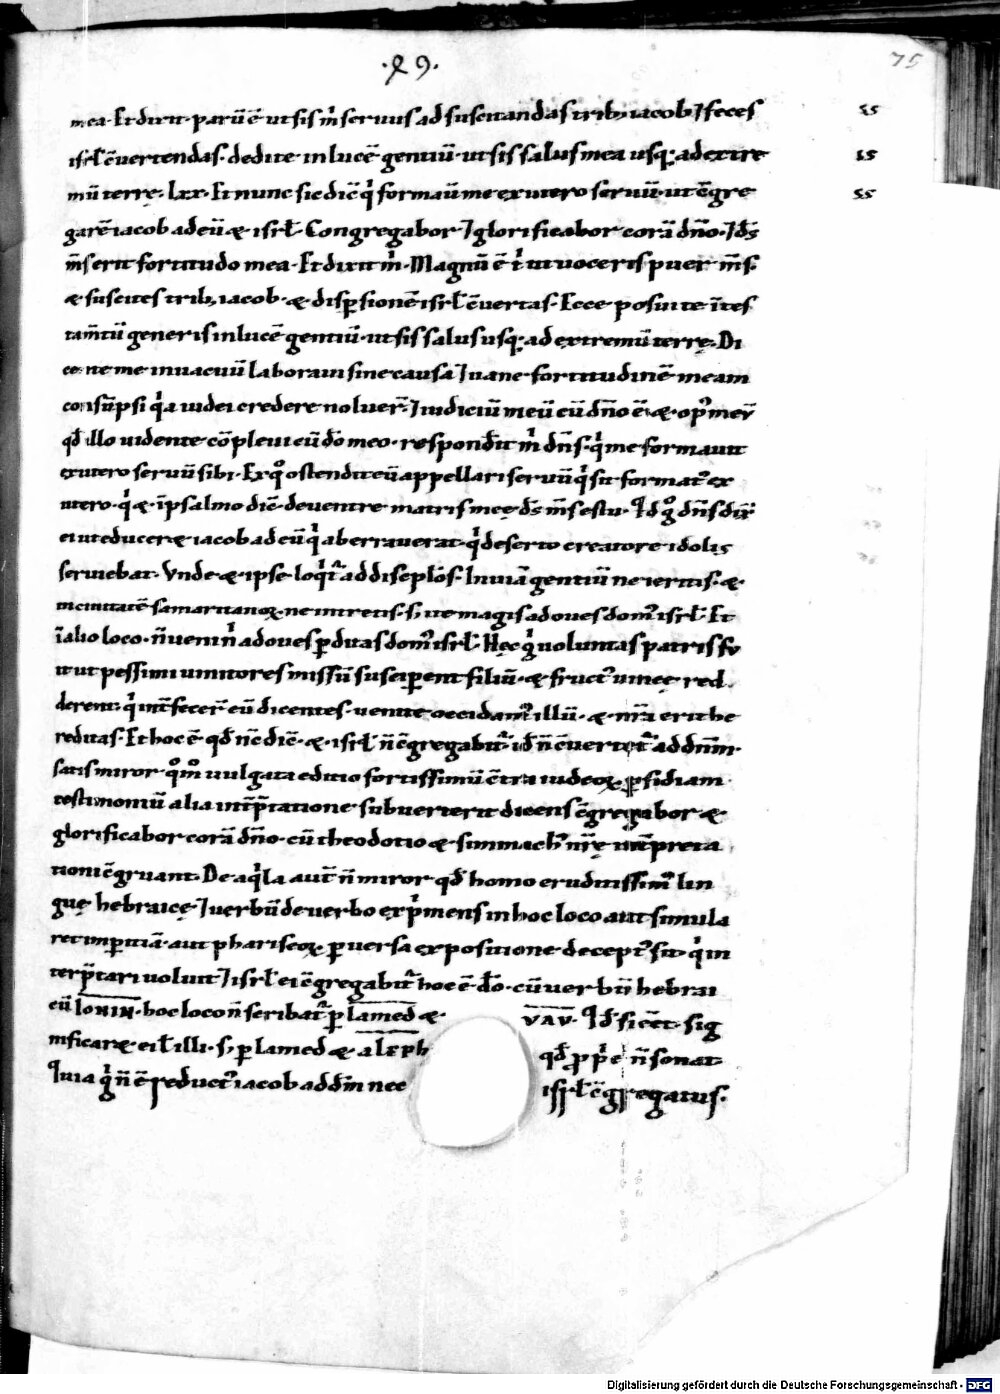 ·49·
75
mea· Et dixit· parū ē ut sis m̄ servus ad suscitandas trib; iacob ⁊ feces ss
isrl̄ ēvertendas· dedi te in lucē gentiū· ut sis salus mea usq; ad extre ss
mū terrę· Lxx· Et nunc sic dic̄ qͥ formaū me ex utero servū· ut ēgre ss
garē iacob ad eū & isrl̄· Congregabor ⁊ glorificabor corā dn̄o· ⁊ d̄s
m̄s erit fortitudo mea· Et dixit m̄· Magnū ē t̄ ut voceris puer m̄s·
& suscites trib; iacob· & disꝑsionē isrl̄ ēvertas· Ecce posui te ī tes
tam̄tū generis in lucē gentiū· ut sis salus usq; ad extremū terrę· Di
cente me in vacuū laboravi sine causa ⁊ vane fortitudinē meam
consūpsi qͥa iudei credere noluer̄· ⁊ iudiciū meū cū dn̄o ē· & opꝰ meū
qd̄ illo vidente cōplevi cū do meo· respondit m̄ dn̄s· qͥ me formavit
ex utero servū sibi· Ex qͦ ostendit eū appellari servū qͥ sit formatꝰ ex
utero· qͥ & ī psalmo dic̄· de ventre matris meę ds̄ m̄s es tu· Id gͦ dn̄s dix̄
ei ut educer& iacob ad eū qͥ aberraverat· qͥ deserto creatore idolis
serviebat· Unde & ipse loqͥt̄ ad disc̄plos· In viā gentiū ne ieritis· &
in civitatē samaritanoꝝ· ne intretis· s; ite magis ad oves domꝰ isrl̄· Et
ī alio loco· n̄ veni n̄ ad oves ꝑditas domꝰ isrl̄· Hęc gͥ voluntas patris fu
it ut pessimi vinitores missū susciꝑent filiū· & fructꝰ vineę red
derent· qͥ int̄fecer̄ eū dicentes· venite occidamꝰ illū· & nr̄a erit he
reditas· Et hoc ē qd̄ nc̄ dic̄· & isrl̄ n̄ ēgregabit̄· id n̄ ēvertet̄ ad dnm·
satis miror qͦm̄ vulgata editio fortissimū ēt̄ra iudeoꝝ ꝑfidiam
testimoniū alia int̄p̄tatione subverterit dicens ēgregabor &
glorificabor corā dn̄o· cū theodotio & simmachꝰ nr̄ę int̄preta
tioni ēgruant· De aqͥla aut̄ n̄ miror qd̄ homo eruditissimꝰ lin
guę hebraicę ⁊ verbū de verbo exp̄mens in hoc loco aut simula
ret imꝑitiā· aut phariseoꝝ ꝑversa expositione deceptꝰ sit· qͥ in
terp̄tari voluit ⁊ isrl̄ ei ēgregabit̄ hoc ē do· cū verbū hebrai
cū IONIN· hoc loco n̄ scribat̄ ꝑ lamed & VAV· Qd̄ si eēt· sig
nificar& ei ł illi· s; ꝑ lamed & aleph qd̄ ꝓp̄e n̄ sonat·
Quia gͥ n̄ ē reductꝰ iacob ad dm̄ nec isrl̄ ēgregatus·
Digitalisierung gefördert durch die Deutsche Forschungsgemeinschaft - DFG